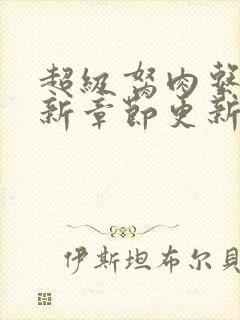 超級 肉
新章節更新
伊斯坦布尔